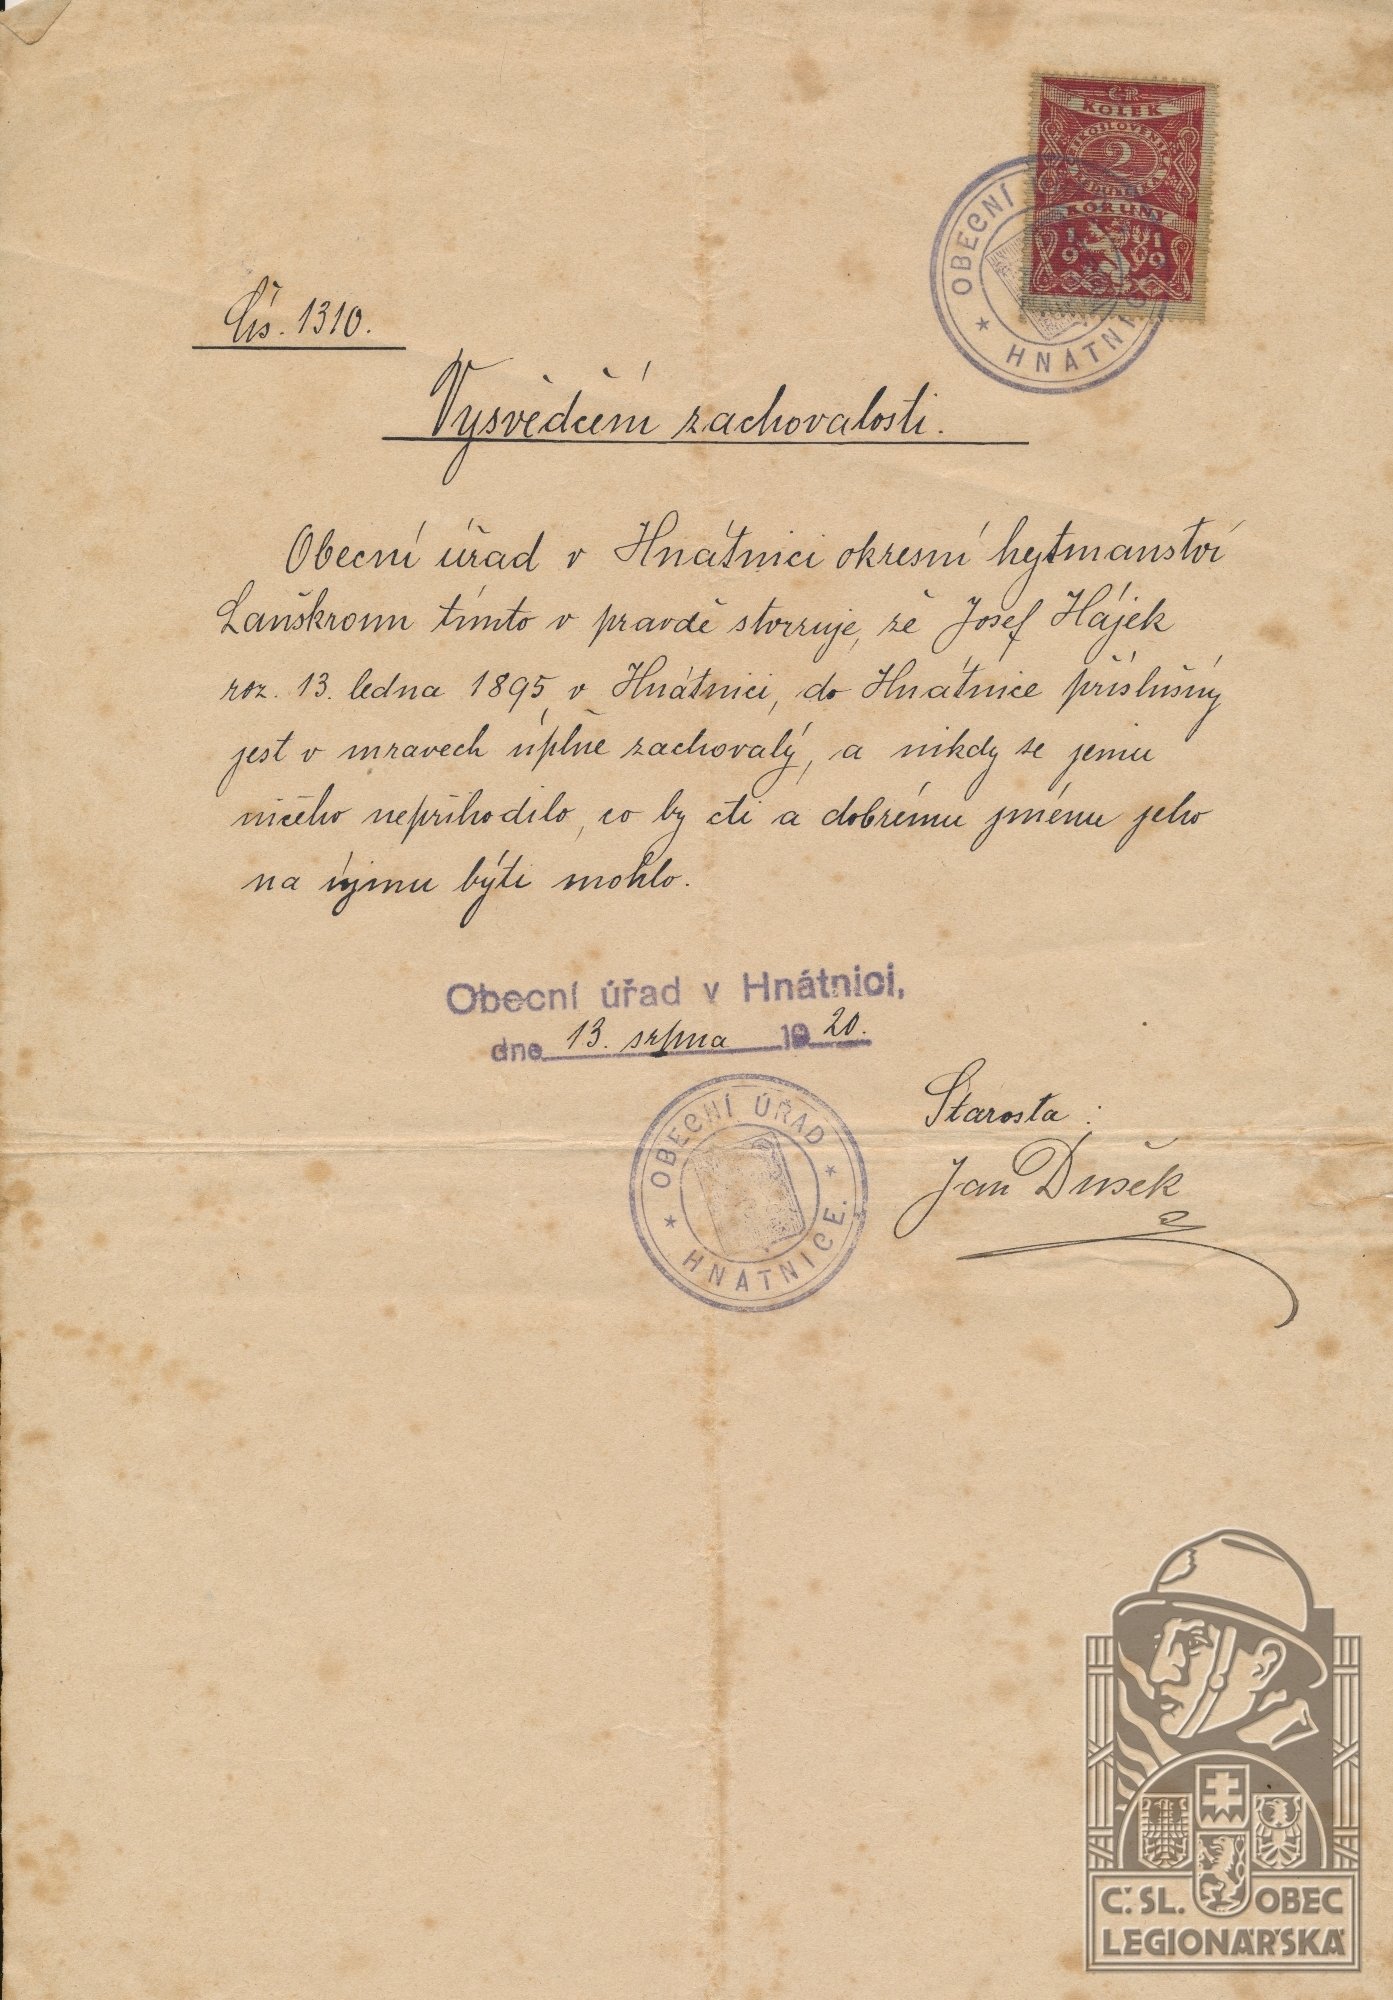 ČR
KOLEK
ČESKOSLOVENSKÁ
2
REPUBLIKA
KORUNY
19 19
OBECNÍ
★ HNÁTNIC
Čís. 1310.
Vysvědčení zachovalosti.
Obecní úřad v Hnátnici okresní hejtmanství
Lanškroun tímto v pravdě stvrzuje, že Josef Hájek
roz. 13. ledna 1895, v Hnátnici, do Hnátnice příslušný
jest v mravech úplně zachovalý, a nikdy se jemu
ničeho nepřihodilo, co by cti a dobrému jménu jeho
na újmu býti mohlo.
Obecní úřad v Hnátnici,
dne 13. srpna 1920.
★ OBECNÍ ÚŘAD ★
HNÁTNICE.
Starosta:
Jan Dušek
Č. SL. OBEC
LEGIONÁŘSKÁ